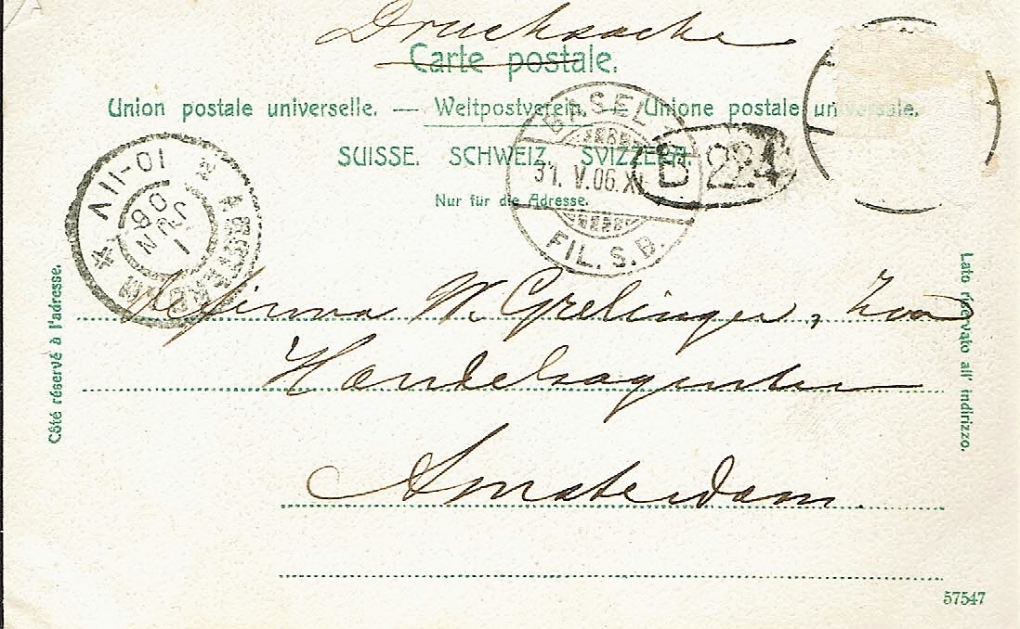 Drucksache
Carte postale.
Union postale universelle. — Weltpostverein. — Unione postale universale.
SUISSE. SCHWEIZ. SVIZZERA.
Nur für die Adresse.
BASEL
31. V. 06. XI
FIL. S. B.
B 224
AMSTERDAM
2 JUN 06
10-11 V
Côté réservé à l'adresse.
Lato riservato all' indirizzo.
De firma W. Grelinger, Zoon
Handelsagenten
Amsterdam.
57547